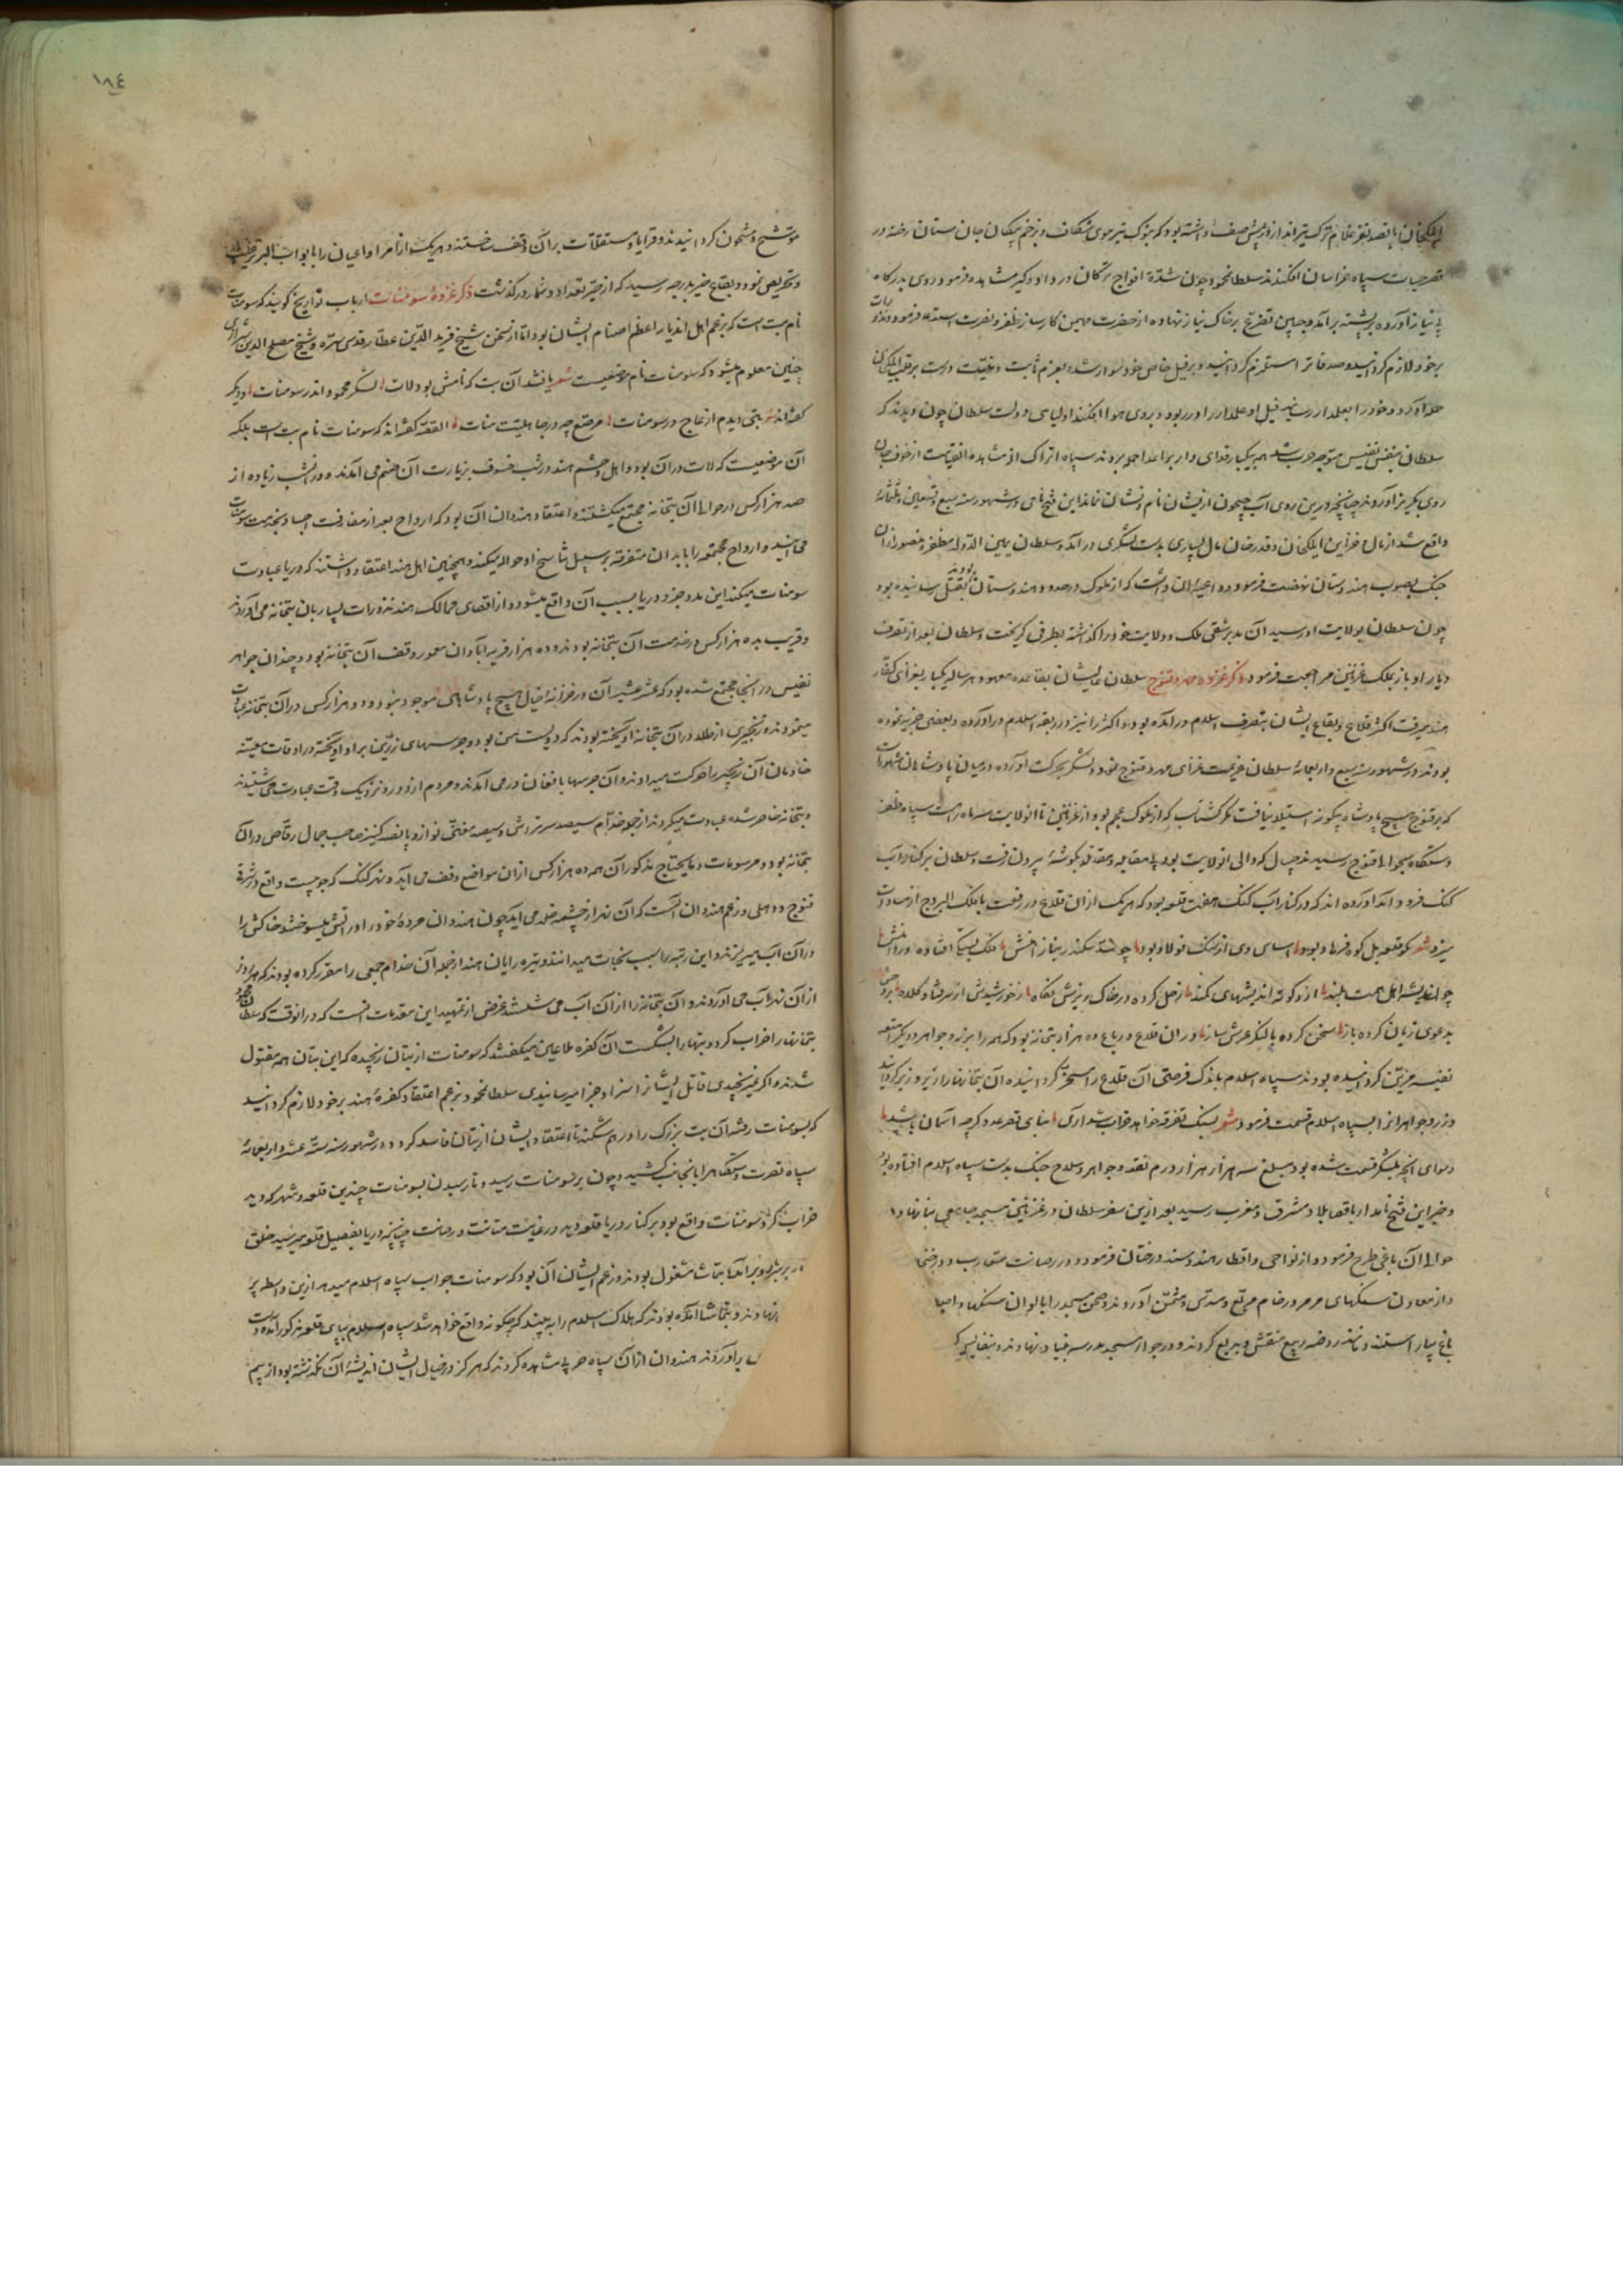 ایلکخان پانصد نفر غلام ترک تیرانداز از پیش صف داشته بود که بنوک تیر موی شکافند و بزخم پیکان جان ستان رخنه در
قصر حیات سپاه خراسان افکندند سلطان محمود چون شدّة افواج ترکان در دار و گیر مشاهده فرمود روی بدرگاه
بی نیاز آورده بر پشته برآمد و جبین تضرع بر خاک نیاز نهاده از حضرت مهیمن کارساز ظفر و نصرت استدعا فرمود و نذورات
بر خود لازم گردانیده و صدقات ملتزم گردانید و بر فیل خاص خود سوار شده بعزم ثابت و نیّت درست بر قلب ایلکخان
حمله آورد و خود را بعلمدار رسانید فیل او علمدار را در ربود و بر روی هوا افکند اولیای دولت سلطان چون دیدند که
سلطان بنفس نفیس متوجه حرب شد همه بیکبار فدای وار بر اعدا حمله بردند سپاه اتراک از مشاهده آن قیامت از خوف جان
روی بگریز آوردند چنانچه درین روی آب جیحون از ایشان نام و نشان نماند این فتح نامی در شهور سنه سبع و تسعین و ثلثمائه
واقع شد از مال و خزاین ایلکخان و قدرخان مال بسیاری بدست لشکری درآمد و سلطان یمین الدوله مظفر و منصور از آن
جنک بصوب هندوستان نهضت فرمود و داعیه آن داشت که از ملوک در حدود هندوستان بودند بقتل رسانیده بود
چون سلطان بولایت او رسید آن مدبر شقی ملک و ولایت خود را گذاشته بطرفی گریخت و سلطان بعد از تصرف
دیار او باز بملک غزنین مراجعت فرمود ذکر غزوه مهره و قنوج سلطان عالیشان بقاعده معهود هر سال یکبار بغزای کفار
هند میرفت اکثر قلاع و بقاع ایشان بتصرف اسلام درآمده بود و اکثر را نیز در ربقه اسلام درآورده و بعضی جزیه نموده
بودند در شهور سنه سبع و اربعمائه سلطان عزیمت غزای مهره و قنوج نمود و لشکر بحرکت آورده در میان پادشاهان مشهورست
که بر قنوج هیچ پادشاه بیگانه استیلا نیافت مگر گشتاسب که از ملوک عجم بود و از غزنین تا آن ولایت سه ماهه راهست سپاه ظفر
دستگاه بحوالی قنوج رسید جیپال که والی آن ولایت بود بی مقابله و مقاتله بگوشهٔ بیرون رفت و سلطان بر کنار آب
کنک فرود آمد آورده اند که در کنار آب کنک هفت قلعه بود که هر یک از آن قلاع در رفعت با فلک البروج از مساوات
میزد شعر نکو قلعه بل کوه فرهاد بود اساس وی از سنک فولاد بود چو سدّ سکندر بنا ز آهنش فلک پست افتاده در دامنش
چو اندیشه اهل همت بلند از او کوته اندیشهای کمند زحل کرده در خاک ریزش نگاه ز خورشیدش از سر فتاده کلاه
بدعوی زبان کرده باز سخن کرده با کنگر عرش ساز در آن قلاع و رباع ده هزار بتخانه بود که همه را بزر و جواهر و دیگر امتعه
نفیسه مزین گردانیده بودند سپاه اسلام باندک فرصتی آن قلاع را مسخر گردانیده آن بتخانها را زیر و زبر گردانید
و زر و جواهر آنرا بسپاه اسلام قسمت فرمود شعر بسنک تفرقه خواهد خراب شد آری بنای قصر عدو گرچه آسمان باشد
و سوای آنچه بلشکر قسمت شده بود مبلغ سه هزار هزار درم نقد و جواهر و سلاح جنک بدست سپاه اسلام افتاده بود
و خبر این فتح نامدار باقصا بلاد مشرق و مغرب رسید بعد ازین سفر سلطان در غزنین مسجد جامعی بنا نهاد و
حوالی آن باغی طرح فرمود و از نواحی و اقطار هند و سند درختان فرمود و در رصانت متقارب و در ضخا
و از معادن سنگهای مرمر و رخام مربع و مسدس و مثمن آوردند و صحن مسجد را بالوان سنگها و اصبا
باغ بیاراستند و مانند روضه ربیع منقش و بدیع کردند و در جوار مسجد مدرسه بنیاد نهادند و بنفایس کتب
۱۸٤
موشّح و مشحون گردانیدند و قرایا و مستغلات بر آن وقف ساختند و هر یک از امرا و اعیان را بابواب البر ترغیب
و تحریص نمود و بقاع خیر بدرجه رسید که از حیّز تعداد و شمار درگذشت ذکر غزوهٔ سومنات ارباب تواریخ گویند که سومنات
نام بت است که بزعم اهل آن دیار اعظم اصنام ایشان بود اما از سخن شیخ فرید الدّین عطّار قدس سرّه و شیخ مصلح الدین شیرازی
چنین معلوم میشود که سومنات نام موضعیست شعر یافتند آن بت که نامش بود لات لشکر محمود اندر سومنات و دیگر
گفته اند بتی دیدم از عاج در سومنات مرصّع چو در جاهلیّت منات القصه گفته اند که سومنات نام بت است بلکه
آن موضعیست که لات در آن بود و اهل و حشم هند در شب خسوف بزیارت آن صنم می آمدند و در آن شب زیاده از
صد هزار کس در حوالی آن بتخانه مجتمع میگشتند و اعتقاد هندوان آن بود که ارواح بعد از مفارقت اجساد بخدمت سومنات
می آیند و ارواح مجتمعه را بابدان متفرقه بر سبیل تناسخ او حواله میکند و همچنین اهل هند اعتقاد داشتند که دریا عبادت
سومنات میکند این مد و جزر دریا بسبب آن واقع میشود و از اقصای ممالک هند نذورات بسیار بآن بتخانه می آوردند
و قریب بده هزار کس در خدمت آن بتخانه بودند و ده هزار قریه آبادان معمور وقف آن بتخانه بود و چندان جواهر
نفیس در آنجا مجتمع شده بود که عشر عشیر آن در خزانهٔ خیال هیچ پادشاهی موجود نبود و دو هزار کس در آن بتخانه عبادت
مینمودند و زنجیری از طلا در آن بتخانه آویخته بودند که دویست من بود و جرسهای زرین بر او آویخته در اوقات معینه
خادمان آن زنجیر را حرکت میدادند و آن جرسها بافغان در می آمدند و مردم از دور و نزدیک وقت عبادت می شنیدند
و بتخانه حاضر شده عبادت میکردند از جمله خدّام سیصد سرتراش و سیصد مغنّی نواز و پانصد کنیز صاحب جمال رقاص در آن
بتخانه بود و مرسومات و مایحتاج مذکوران همه ده هزار کس از آن مواضع وقف می آید و نهر کنک که جوییست واقع در شرق
قنوج و دهلی و زعم هندوان آنست که آن نهر از چشمه خلد می آید چون هندوان مردهٔ خود را در آتش میسوختند خاکش را
در آن آب میریزند و این رتبه را سبب نجات میدانند و تیره رایان هند از جمله آن خدام جمعی را مقرر کرده بودند که هر روز
از آن نهر آب می آوردند و آن بتخانه را از آن آب می شستند غرض از تمهید این مقدمات آنست که در آن وقت که سلطان محمود
بتخانها را خراب کرد و بتها را بشکست آن کفره ملاعین میگفتند که سومنات از بتان رنجیده که این بتان همه مقتول
شدند و اگر نمی رنجیدی قاتل ایشانرا سزا و جزا میرسانیدی سلطان محمود بزعم اعتقاد کفرهٔ هند بر خود لازم گردانید
که بسومنات رفته آن بت بزرک را در هم شکند تا اعتقاد ایشان از بتان فاسد گردد و در شهور سنه ستّه عشر و اربعمائه
سپاه نصرت دستگاه را بآنجانب کشید و چون بر سومنات رسید و تا رسیدن بسومنات چندین قلعه و شهر که دید
خراب کرد سومنات واقع بود بر کنار دریا قلعه دید در غایت متانت و رصانت چنانچه دریا بفصیل قلعه میرسید خلق
بر سر دیوار برآمده بتماشا مشغول بودند و زعم ایشان آن بود که سومنات جواب سپاه اسلام میدهد ازین واسطه بر
نهادند و بتماشا آمده بودند که هلاک اسلام را ببینند که چگونه واقع خواهد شد سپاه اسلام بپای قلعه مذکور آمده دست
برآوردند هندوان از آن سپاه حربی مشاهده کردند که هرگز در خیال ایشان اندیشهٔ آن نگذشته بود از بیم